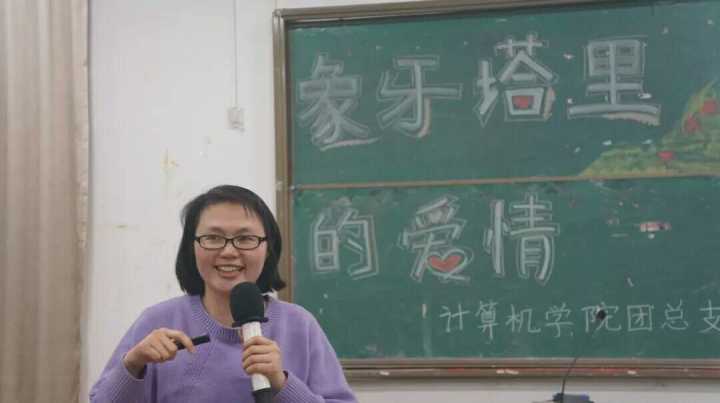 象牙塔里
的爱情
计算机学院团总支